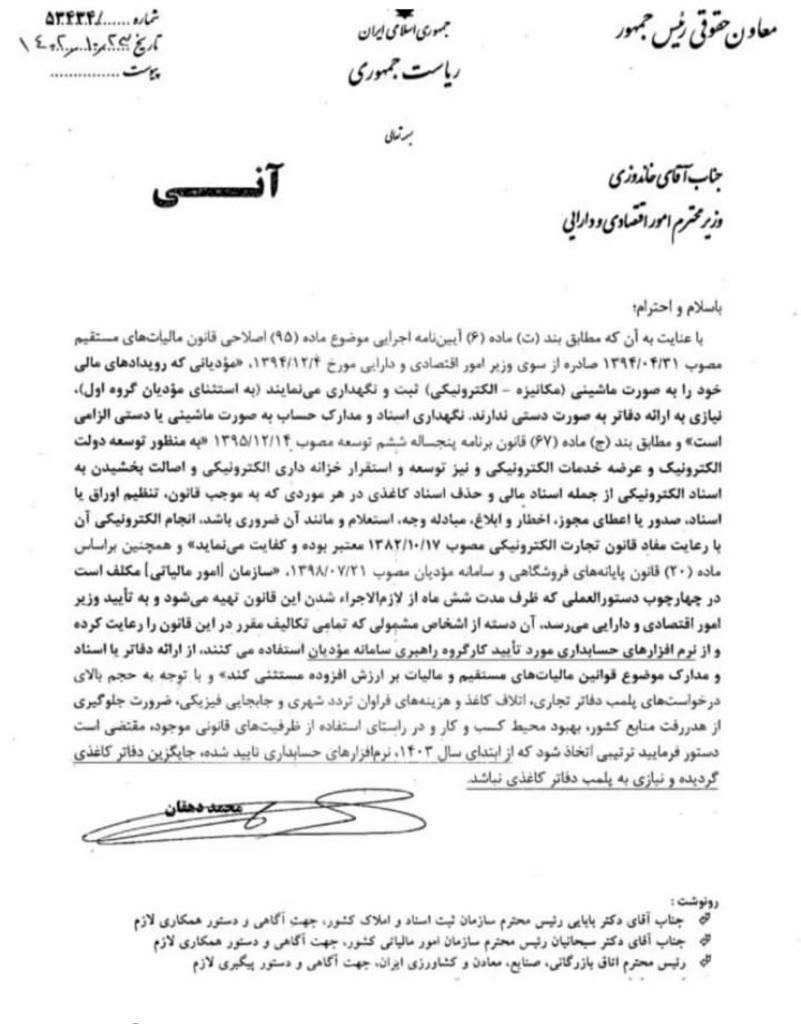 معاون حقوقی رئیس جمهور
جمهوری اسلامی ایران
ریاست جمهوری
شماره ....../۵۳۴۳۴
تاریخ ۱۴۰۲/۱۰/۲۳
پیوست ................
بسمه تعالی
آنـــی
جناب آقای خاندوزی
وزیر محترم امور اقتصادی و دارایی
باسلام و احترام؛
با عنایت به آن که مطابق بند (ت) ماده (۶) آیین‌نامه اجرایی موضوع ماده (۹۵) اصلاحی قانون مالیات‌های مستقیم
مصوب ۱۳۹۴/۰۴/۳۱ صادره از سوی وزیر امور اقتصادی و دارایی مورخ ۱۳۹۴/۱۲/۴، «مؤدیانی که رویدادهای مالی
خود را به صورت ماشینی (مکانیزه - الکترونیکی) ثبت و نگهداری می‌نمایند (به استثنای مؤدیان گروه اول)،
نیازی به ارائه دفاتر به صورت دستی ندارند. نگهداری اسناد و مدارک حساب به صورت ماشینی یا دستی الزامی
است» و مطابق بند (چ) ماده (۶۷) قانون برنامه پنجساله ششم توسعه مصوب ۱۳۹۵/۱۲/۱۴ «به منظور توسعه دولت
الکترونیک و عرضه خدمات الکترونیکی و نیز توسعه و استقرار خزانه داری الکترونیکی و اصالت بخشیدن به
اسناد الکترونیکی از جمله اسناد مالی و حذف اسناد کاغذی در هر موردی که به موجب قانون، تنظیم اوراق یا
اسناد، صدور یا اعطای مجوز، اخطار و ابلاغ، مبادله وجه، استعلام و مانند آن ضروری باشد، انجام الکترونیکی آن
با رعایت مفاد قانون تجارت الکترونیکی مصوب ۱۳۸۲/۱۰/۱۷ معتبر بوده و کفایت می‌نماید» و همچنین براساس
ماده (۲۰) قانون پایانه‌های فروشگاهی و سامانه مؤدیان مصوب ۱۳۹۸/۰۷/۲۱، «سازمان [امور مالیاتی] مکلف است
در چهارچوب دستورالعملی که ظرف مدت شش ماه از لازم‌الاجراء شدن این قانون تهیه می‌شود و به تأیید وزیر
امور اقتصادی و دارایی می‌رسد، آن دسته از اشخاص مشمولی که تمامی تکالیف مقرر در این قانون را رعایت کرده
و از نرم افزارهای حسابداری مورد تأیید کارگروه راهبری سامانه مؤدیان استفاده می کنند، از ارائه دفاتر یا اسناد
و مدارک موضوع قوانین مالیات‌های مستقیم و مالیات بر ارزش افزوده مستثنی کند» و با توجه به حجم بالای
درخواست‌های پلمب دفاتر تجاری، اتلاف کاغذ و هزینه‌های فراوان تردد شهری و جابجایی فیزیکی، ضرورت جلوگیری
از هدررفت منابع کشور، بهبود محیط کسب و کار و در راستای استفاده از ظرفیت‌های قانونی موجود، مقتضی است
دستور فرمایید ترتیبی اتخاذ شود که از ابتدای سال ۱۴۰۳، نرم‌افزارهای حسابداری تایید شده، جایگزین دفاتر کاغذی
گردیده و نیازی به پلمب دفاتر کاغذی نباشد.
محمد دهقان
رونوشت :
جناب آقای دکتر بابایی رئیس محترم سازمان ثبت اسناد و املاک کشور، جهت آگاهی و دستور همکاری لازم
جناب آقای دکتر سبحانیان رئیس محترم سازمان امور مالیاتی کشور، جهت آگاهی و دستور همکاری لازم
رئیس محترم اتاق بازرگانی، صنایع، معادن و کشاورزی ایران، جهت آگاهی و دستور پیگیری لازم